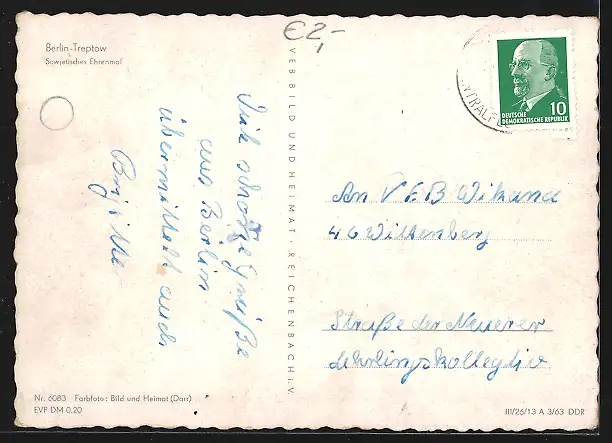 Berlin-Treptow
Sowjetisches Ehrenmal
€2,-
Viele schöne Grüße
aus Berlin
übermittelt euch
Brigitte
VEB BILD UND HEIMAT · REICHENBACH i. V.
DEUTSCHE
DEMOKRATISCHE REPUBLIK
10
An VEB Wikana
46 Wittenberg
Straße der Neuerer
Lehrlingskollegtiv
Nr. 6083 Farbfoto: Bild und Heimat (Darr)
EVP DM 0,20
III/26/13 A 3/63 DDR